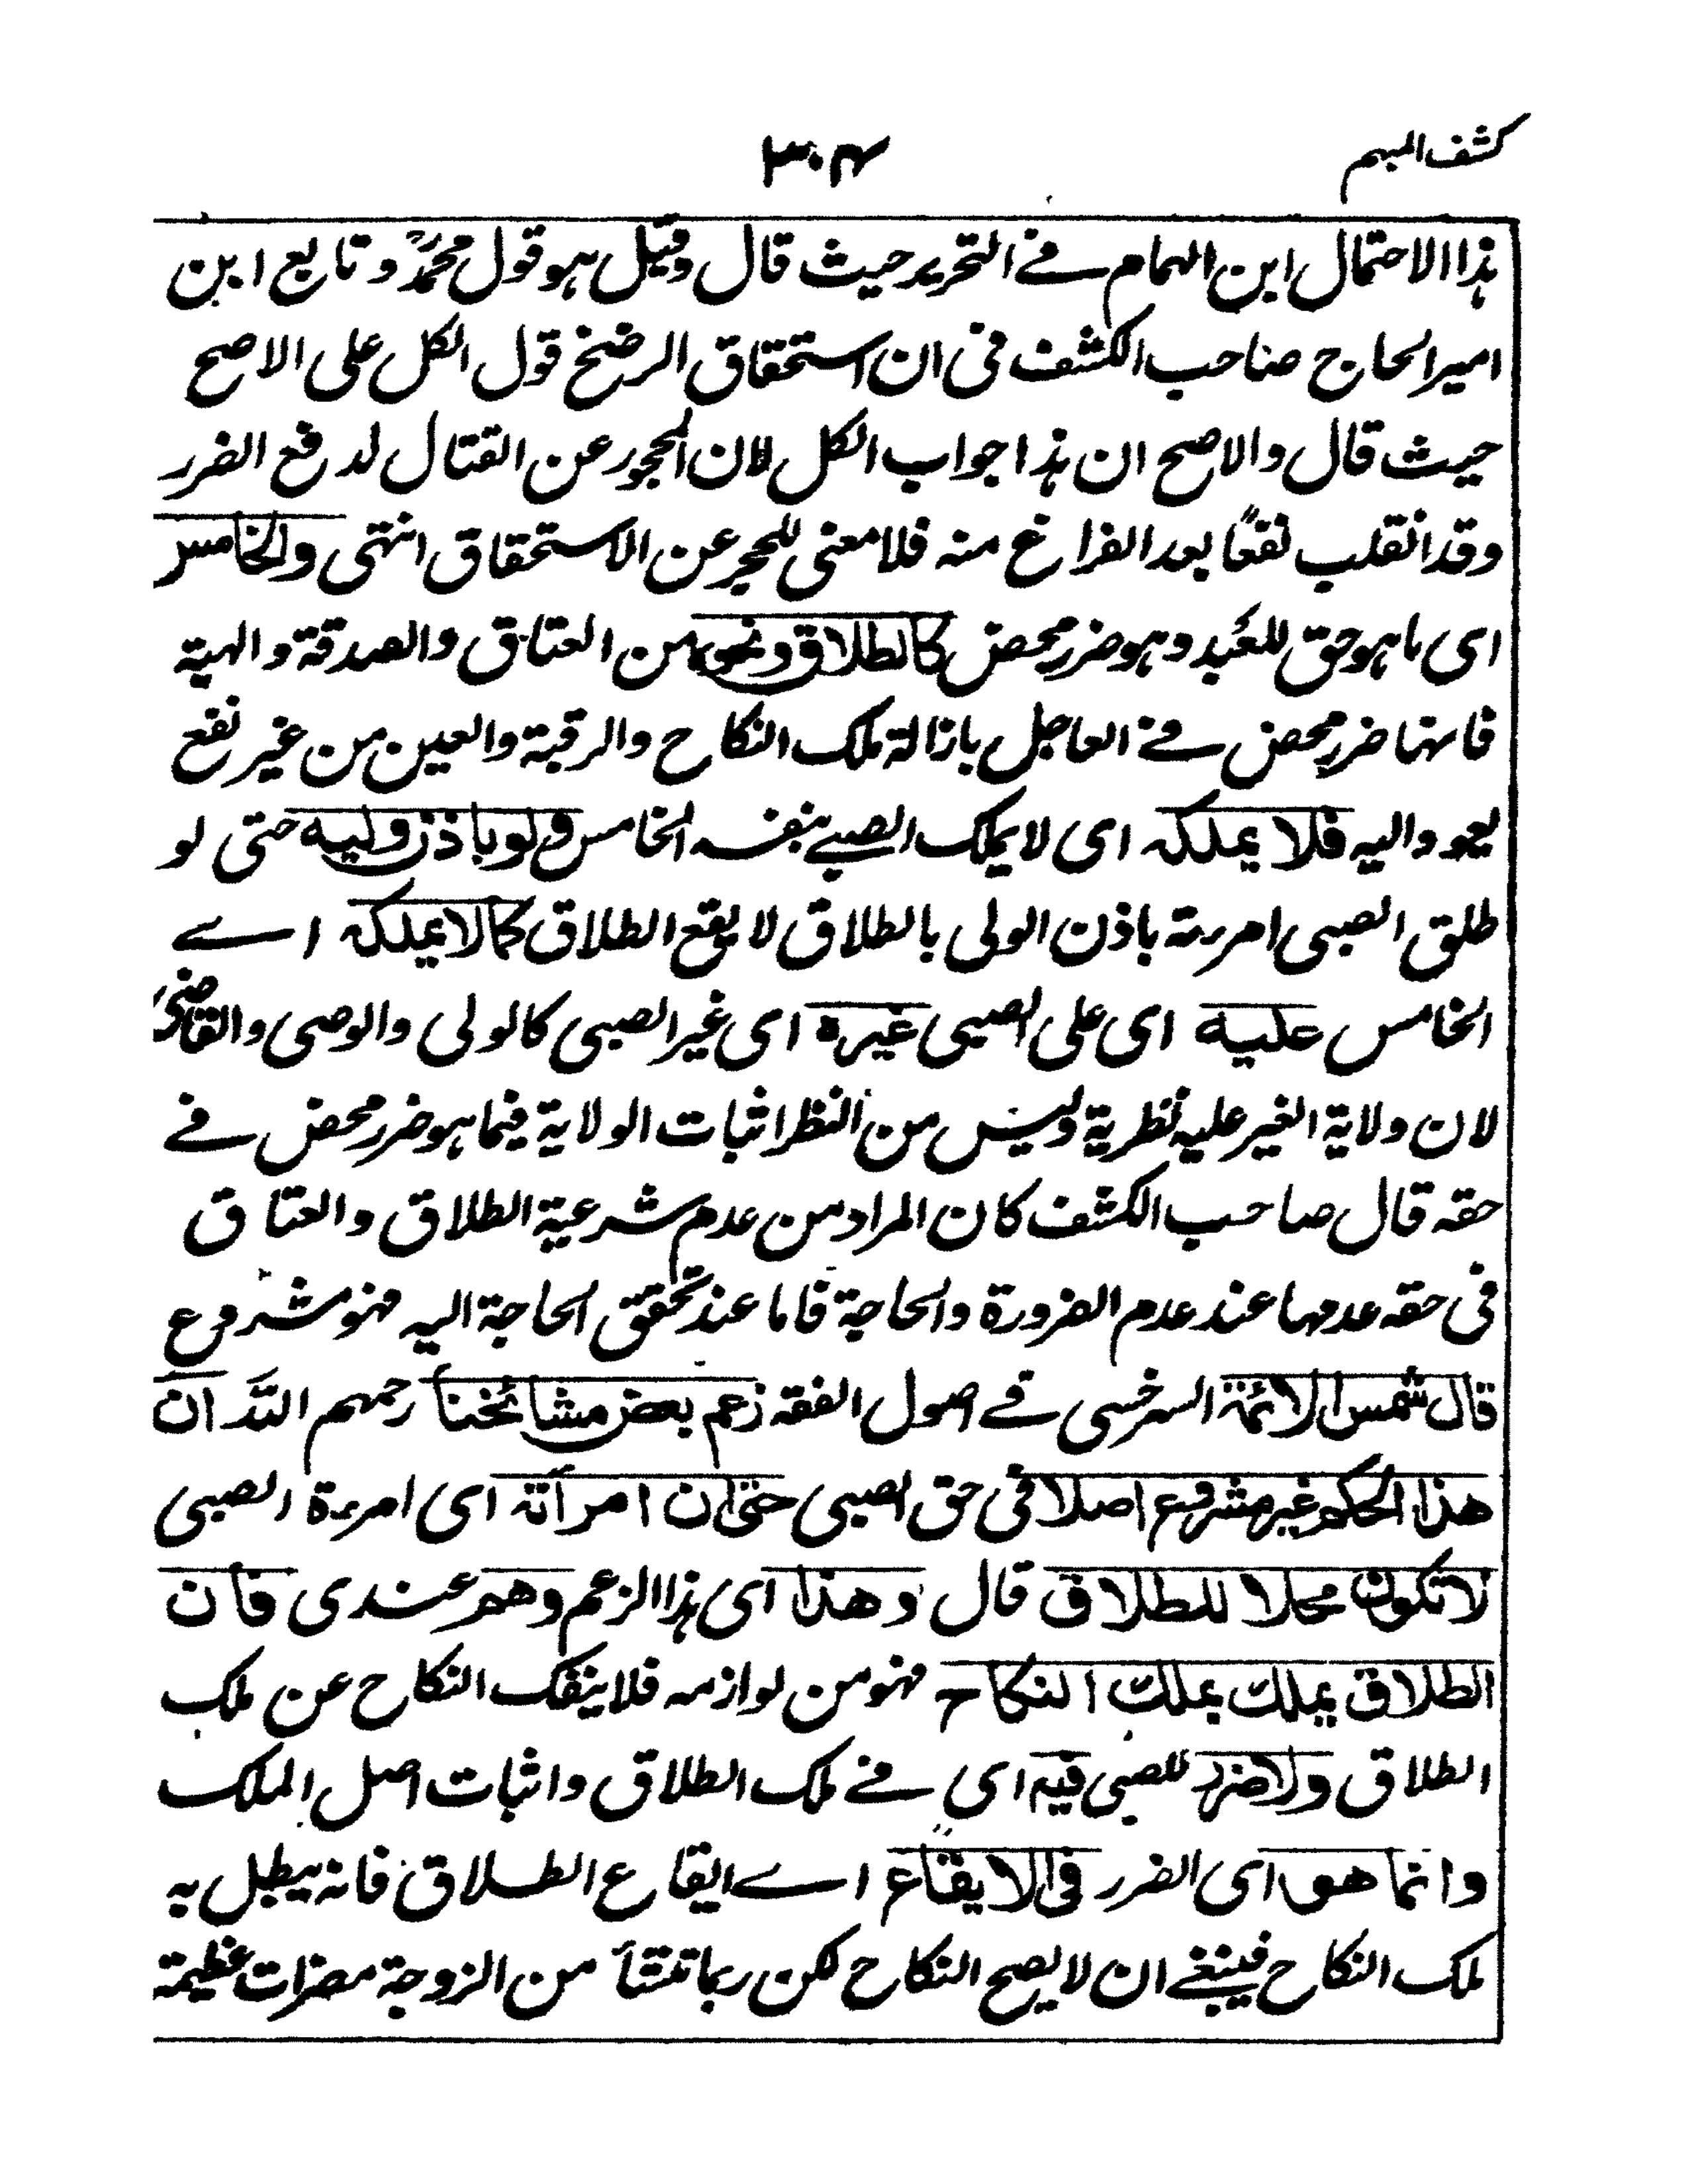 كشف المبهم
٣٠٤
هذا الاحتمال ابن الهمام في التحرير حيث قال وقيل هو قول محمدؒ وتابع ابن
امير الحاج صاحب الكشف فى ان استحقاق الرضخ قول الكل على الاصح
حيث قال والاصح ان هذا جواب الكل لان المحجور عن القتال لدفع الضرر
وقد انقلب نفعًا بعد الفراغ منه فلا معنى للحجر عن الاستحقاق انتهى والخامس
اى ما هو حق للعبد وهو ضرر محض كالطلاق ونحوه من العتاق والصدقة والهبة
فانها ضرر محض في العاجل بازالة ملك النكاح والرقبة والعين من غير نفع
يعود اليه فلا يملكه اى لا يملك الصبي بنفسه الخامس ولو باذن وليه حتى لو
طلق الصبى امرءته باذن الولى بالطلاق لا يقع الطلاق كما لا يملكه اے
الخامس عليه اى على الصبى غيره اى غير الصبى كالولى والوصى والقاضى
لان ولاية الغير عليه نظرية وليس من النظر اثبات الولاية فيما هو ضرر محض في
حقه قال صاحب الكشف كان المراد من عدم شرعية الطلاق والعتاق
فى حقه عدمها عند عدم الضرورة والحاجة فاما عند تحقق الحاجة اليه فهو مشروع
قال شمس الائمة السرخسى في اصول الفقه زعم بعض مشائخنا رحمهم الله ان
هذا الحكم غير مشروع اصلا فى حق الصبى حتى ان امرأته اى امرءة الصبى
لا تكون محلا للطلاق قال وهذا اى هذا الزعم وهم عندى فان
الطلاق يملك بملك النكاح فهو من لوازمه فلا ينفك النكاح عن ملك
الطلاق ولا ضرر للصبى فيه اى في ملك الطلاق واثبات اصل الملك
وانما هو اى الضرر فى الايقاع اے ايقاع الطلاق فانه يبطل به
ملك النكاح فينبغي ان لا يصح النكاح لكن ربما تنشأ من الزوجة مضرات عظيمة